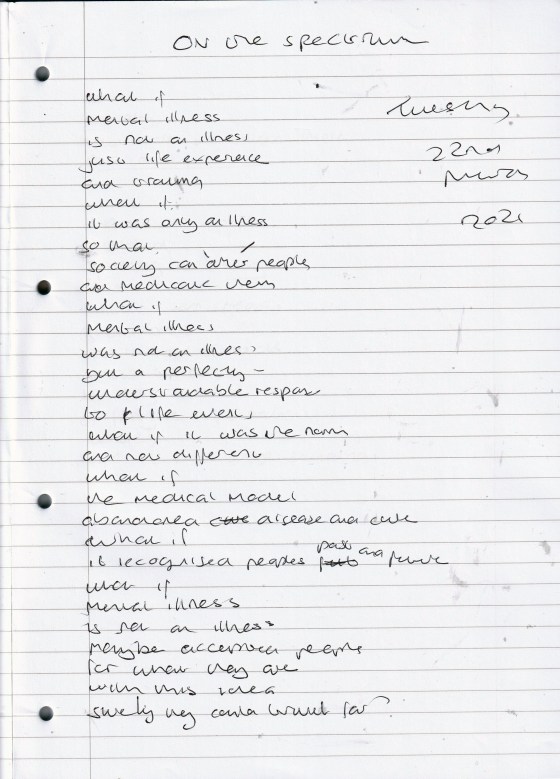 On the spectrum
what if
mental illness
is not an illness
just life experience
and trauma
what if
it was only an illness
so that
society can 'other' people
and medicate them
what if
mental illness
was not an illness
but a perfectly -
understandable response
to life events
what if it was the norm
and not different
what if
the medical model
abandoned disease and cure
what if
it recognised peoples past and future
what if
mental illness
is not an illness
maybe accepted people
for what they are
with this idea
surely they could
Tuesday
22nd
2021